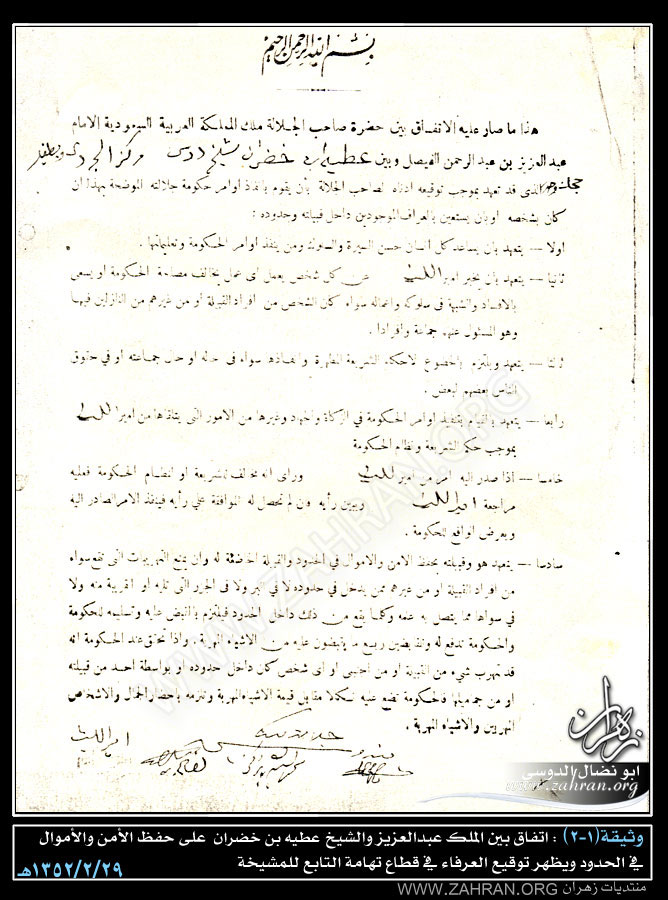 بسم الله الرحمن الرحيم
هذا ما صار عليه الاتفاق بين حضرة صاحب الجلالة ملك المملكة العربية السعودية الامام
عبد العزيز بن عبد الرحمن الفيصل وبين عطيه بن خضران شيخ دوس
الذى قد تعهد بموجب توقيعه ادناه لصاحب الجلالة بأن يقوم بانفاذ اوامر حكومة جلالته الموضحة بهذا ان
كان بشخصه او بان يستعين بالعراف الموجودين داخل قبيلته وحدوده :
اولا — يتعهد بان يساعد كل انسان حسن السيرة والسلوك ومن ينفذ اوامر الحكومة وتعليماتها .
ثانيا — يتعهد بان يخبر امير الليث عن كل شخص يعمل اى عمل يخالف مصلحة الحكومة او يسعى
بالافساد والشبهة فى سلوكه واعماله سواء كان الشخص من افراد القبيلة او من غيرهم من النازلين فيها
وهو المسئول عنهم جماعة وافرادا .
ثالثا — يتعهد ويلتزم بالخضوع لاحكام الشريعة المطهرة وانفاذها سواء فى حاله او حال جماعته او فى حقوق
الناس بعضهم لبعض .
رابعا — يتعهد بالقيام بتنفيذ اوامر الحكومة في الزكاة والجهاد وغيرها من الامور التى يتلقاها من امير الليث
بموجب حكم الشريعة ونظام الحكومة
خامسا — اذا صدر اليه امر من امير الليث ورأى انه مخالف للشريعة او لنظام الحكومة فعليه
مراجعة امير الليث وبين رأيه وان لم تحصل له الموافقة علي رأيه فينفذ الامر الصادر اليه
ويعرض الواقع للحكومة .
سادسا — يتعهد هو وقبيلته بحفظ الامن والاموال في الحدود والقبيلة الخاضعة له وان يمنع التهريبات التى تقع سواء
من افراد القبيلة او من غيرهم ممن يدخل في حدوده لا في البر ولا فى الجزر التى تليه او القريبة منه ولا
في سواها مما يتصل به علمه وكلما يقع من ذلك داخل الحدود فيلتزم بالقبض عليه وتسليمه للحكومة
والحكومة تدفع له ربع ما يقبضون عليه من الاشياء المهربة . واذا تحقق عند الحكومة انه
قد تهرب شيء من القبيلة او من اجنبى او اى شخص كان داخل حدوده او بواسطة احد من قبيلته
او من فالحكومة تضع عليه نكالا مقابل قيمة الاشياء المهربة وتلزمه باحضار الجمال والاشخاص
المهربين والاشياء المهربة .
امير الليث
زهران
ابو نضال الدوسي
www.zahran.org
WWW.ZAHRAN.ORG
وثيقة(١-٢) : اتفاق بين الملك عبدالعزيز والشيخ عطيه بن خضران على حفظ الأمن والأموال
في الحدود ويظهر توقيع العرفاء في قطاع تهامة التابع للمشيخة ١٣٥٢/٢/٢٩هـ
منتديات زهران WWW.ZAHRAN.ORG